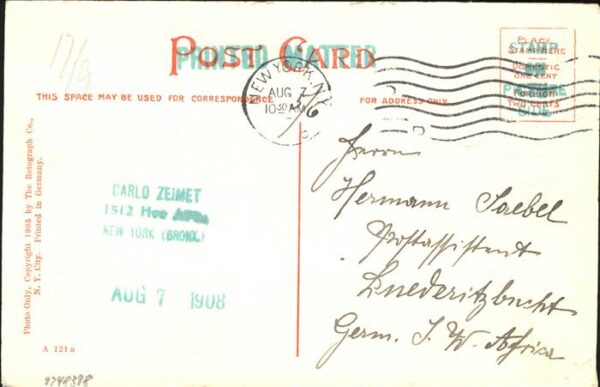 17/9
POST CARD
PRINTED MATTER
PLACE
STAMP HERE
DOMESTIC
ONE CENT
FOREIGN
TWO CENTS
STAMP
ON
PICTURE
SIDE
NEW YORK, N.Y.
AUG 7
10 30 AM
THIS SPACE MAY BE USED FOR CORRESPONDENCE
FOR ADDRESS ONLY.
Herrn
Hermann Saebel
Postassistent
Luederitzbucht
Germ. S. W. Africa
CARLO ZEIMET
1512 Hoe
NEW YORK (BRONX.)
AUG 7 1908
Photo Only, Copyright 1905 by The Rotograph Co.,
N. Y. City. Printed in Germany.
A 121 a